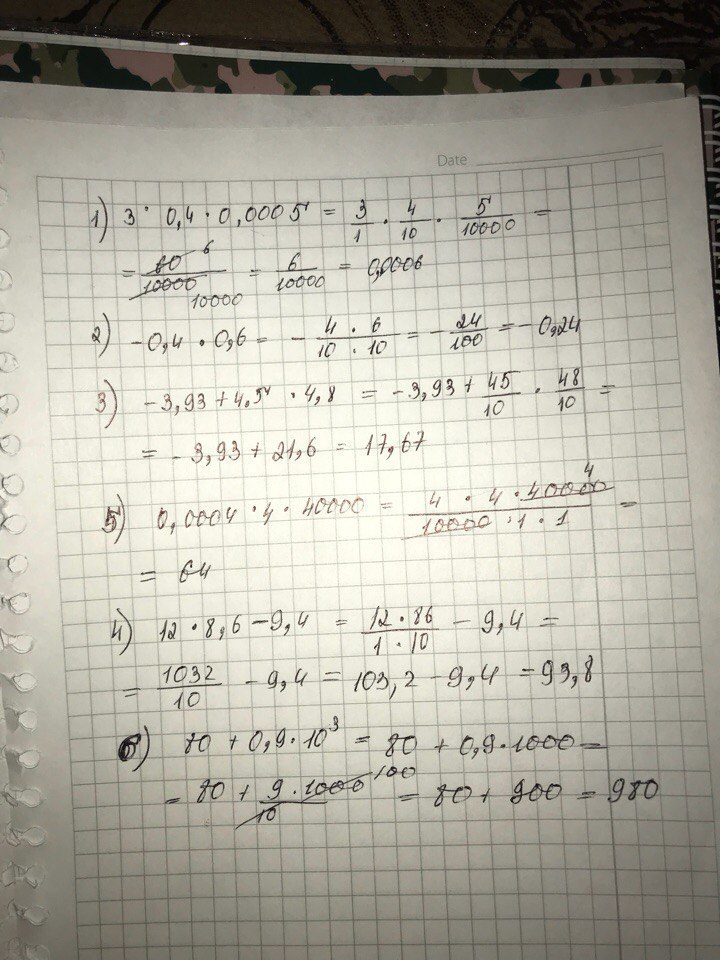 Date
1) 3 · 0,4 · 0,0005 = 3/1 · 4/10 · 5/10000 =
= 60 6/100000 10000 = 6/10000 = 0,0006
2) -0,4 · 0,6 = - 4 · 6/10 · 10 = - 24/100 = -0,24
3) -3,93 + 4,5 · 4,8 = -3,93 + 45/10 · 48/10 =
= -3,93 + 21,6 = 17,67
5) 0,0004 · 4 · 40000 = 4 · 4 · 40000 4/10000 · 1 · 1 =
= 64
4) 12 · 8,6 - 9,4 = 12 · 86/1 · 10 - 9,4 =
= 1032/10 - 9,4 = 103,2 - 9,4 = 93,8
6) 80 + 0,9 · 10³ = 80 + 0,9 · 1000 =
= 80 + 9 · 1000 100/10 = 80 + 900 = 980